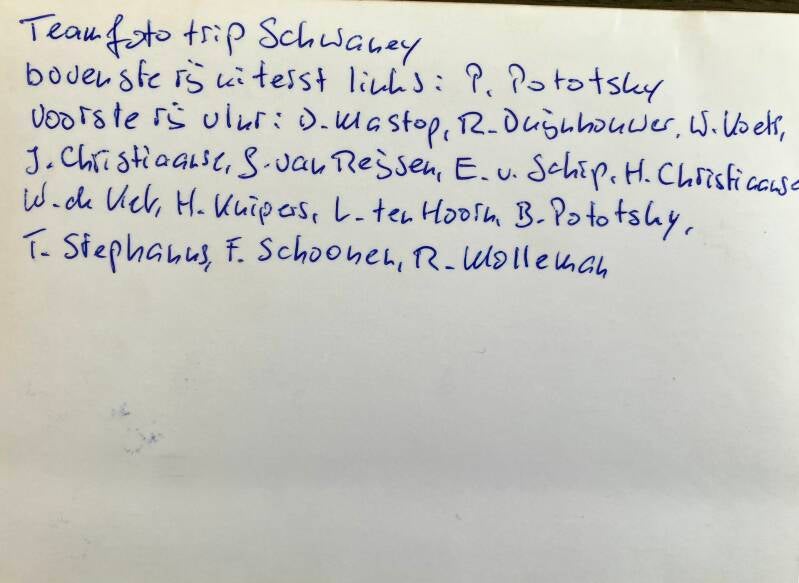 Teamfoto trip Schwaney
bovenste rij uiterst links: P. Pototsky
voorste rij vlnr: D. Mastop, R. Duijnhouwer, W. Voets,
J. Christiaanse, J. van Reijsen, E. v. Schip, H. Christiaanse
W. de Vet, H. Kuipers, L. ten Hoorn, B. Pototsky,
T. Stephanus, F. Schoonen, R. Molleman